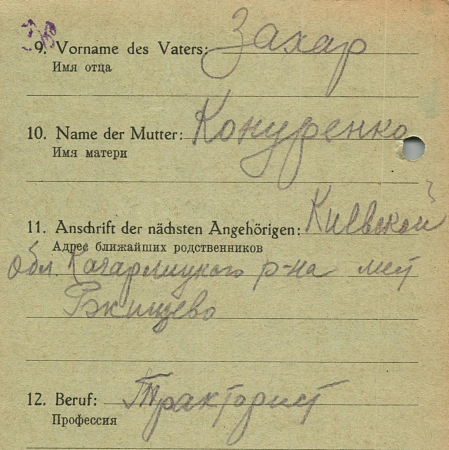 9. Vorname des Vaters: Захар
Имя отца
10. Name der Mutter: Конуренко
Имя матери
11. Anschrift der nächsten Angehörigen: Киевской
Адрес ближайших родственников
обл. Кагарлицкого р-на мет
Ржищево
12. Beruf: Тракторист
Профессия